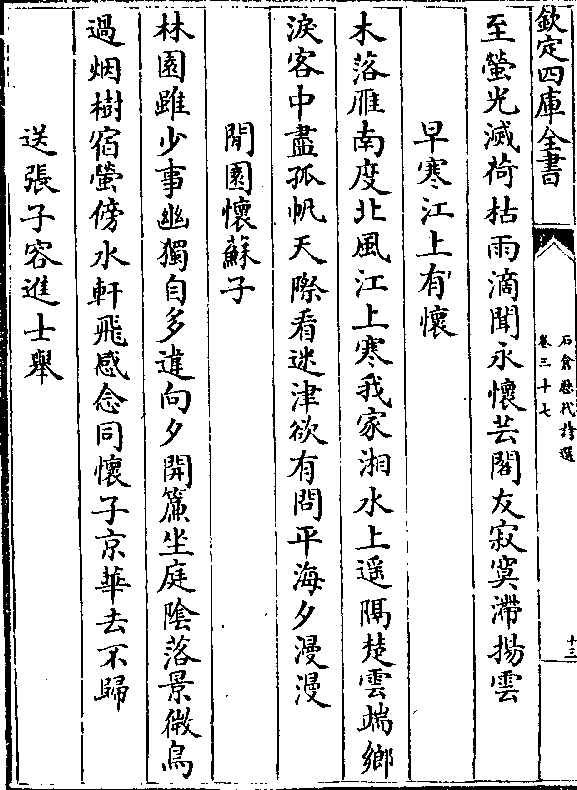 欽定四庫全書
石倉歷代詩選
卷三十七
十三
至螢光滅荷枯雨滴聞永懷芸閣友寂寞滯揚雲
早寒江上有懷
木落雁南度北風江上寒我家湘水上遥隔楚雲端鄉
淚客中盡孤帆天際看迷津欲有問平海夕漫漫
閒園懷蘇子
林園雖少事幽獨自多違向夕開簾坐庭陰落景微鳥
過烟樹宿螢傍水軒飛感念同懷子京華去不歸
送張子容進士舉